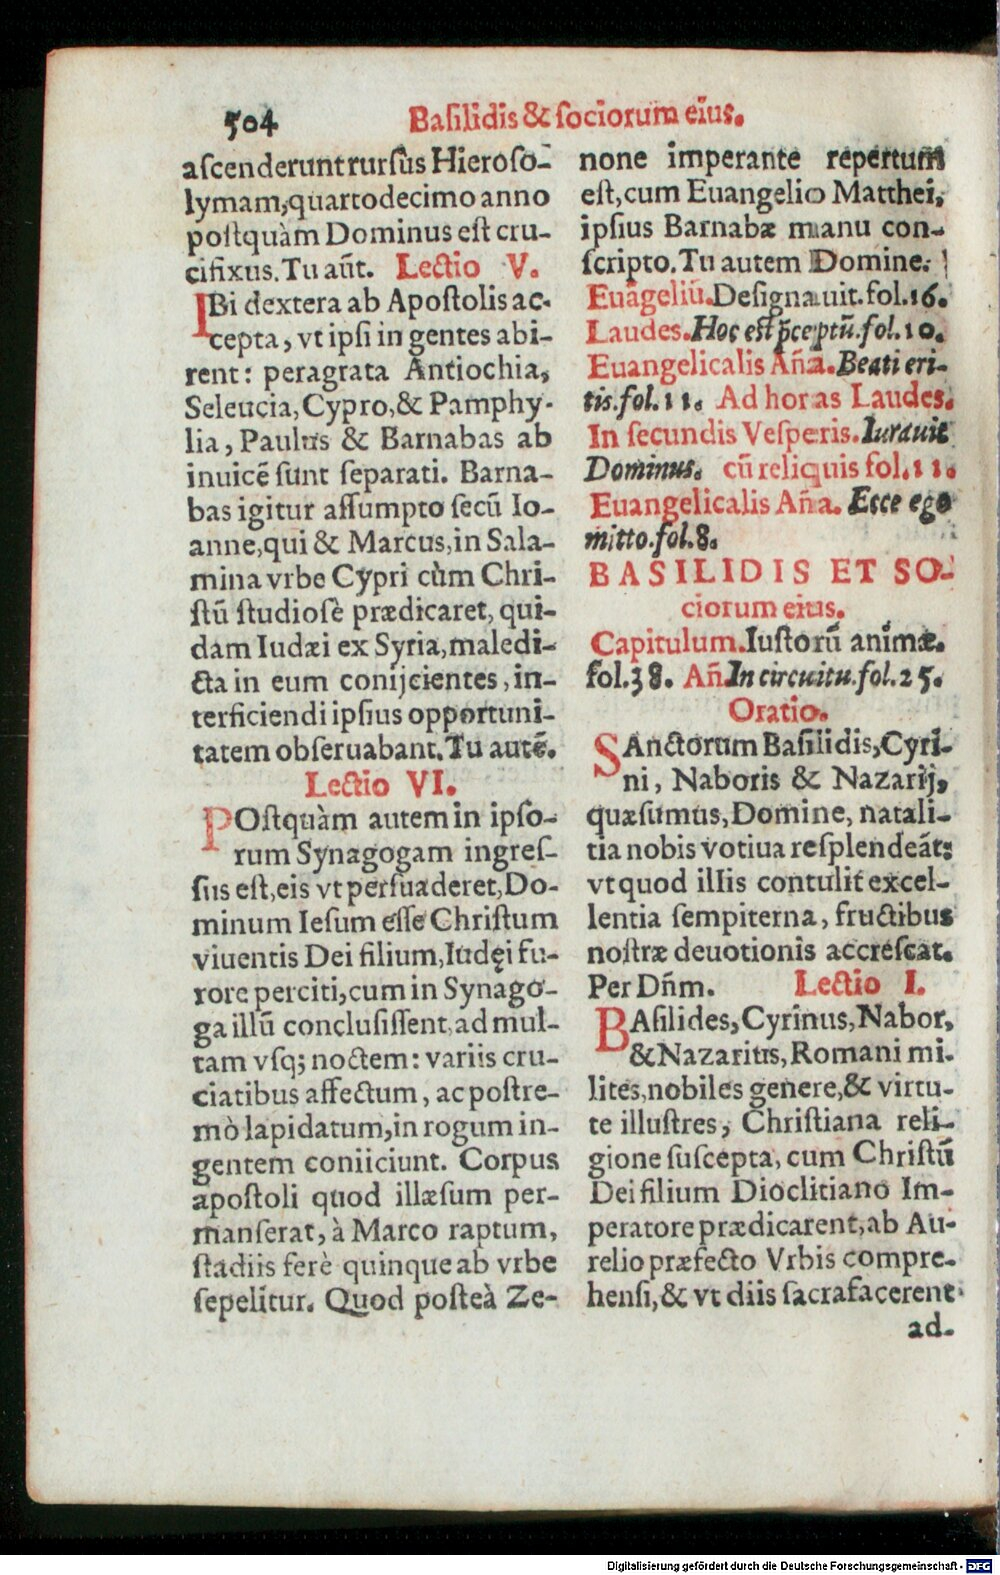 504
Basilidis & sociorum eiûs.
ascenderunt rursûs Hieroso-
lymam, quartodecimo anno
postquàm Dominus est cru-
cifixus. Tu aũt. Lectio V.
IBi dextera ab Apostolis ac-
cepta, vt ipsi in gentes abi-
rent: peragrata Antiochia,
Seleucia, Cypro, & Pamphy-
lia, Paulus & Barnabas ab
inuicẽ sunt separati. Barna-
bas igitur assumpto secũ Io-
anne, qui & Marcus, in Sala-
mina vrbe Cypri cùm Chri-
stũ studiosè prædicaret, qui-
dam Iudæi ex Syria, maledi-
cta in eum conijcientes, in-
terficiendi ipsius opportuni-
tatem obseruabant. Tu autẽ.
Lectio VI.
POstquàm autem in ipso-
rum Synagogam ingres-
sus est, eis vt persuaderet, Do-
minum Iesum esse Christum
viuentis Dei filium, Iudęi fu-
rore perciti, cum in Synago-
ga illũ conclusissent, ad mul-
tam vsq; noctem: variis cru-
ciatibus affectum, ac postre-
mò lapidatum, in rogum in-
gentem coniiciunt. Corpus
apostoli quod illæsum per-
manserat, à Marco raptum,
stadiis ferè quinque ab vrbe
sepelitur. Quod posteà Ze-
none imperante repertum
est, cum Euangelio Matthei,
ipsius Barnabæ manu con-
scripto. Tu autem Domine.
Euãgeliũ. Designauit. fol. 16.
Laudes. Hoc est p̃ceptũ. fol. 10.
Euangelicalis Añа. Beati eri-
tis. fol. 11. Ad horas Laudes.
In secundis Vesperis. Iurauit
Dominus. cũ reliquis fol. 11.
Euangelicalis Aña. Ecce ego
mitto. fol. 8.
BASILIDIS ET SO-
ciorum eius.
Capitulum. Iustorũ animæ.
fol. 38. Añ. In circuitu. fol. 25.
Oratio.
SAnctorum Basilidis, Cyri-
ni, Naboris & Nazarij,
quæsumus, Domine, natali-
tia nobis votiua resplendeãt:
vt quod illis contulit excel-
lentia sempiterna, fructibus
nostræ deuotionis accrescat.
Per Dñm. Lectio I.
BAsilides, Cyrinus, Nabor,
& Nazarius, Romani mi-
lites, nobiles genere, & virtu-
te illustres, Christiana reli-
gione suscepta, cum Christũ
Dei filium Dioclitiano Im-
peratore prædicarent, ab Au-
relio præfecto Vrbis compre-
hensi, & vt diis sacra facerent
ad-
Digitalisierung gefördert durch die Deutsche Forschungsgemeinschaft - DFG